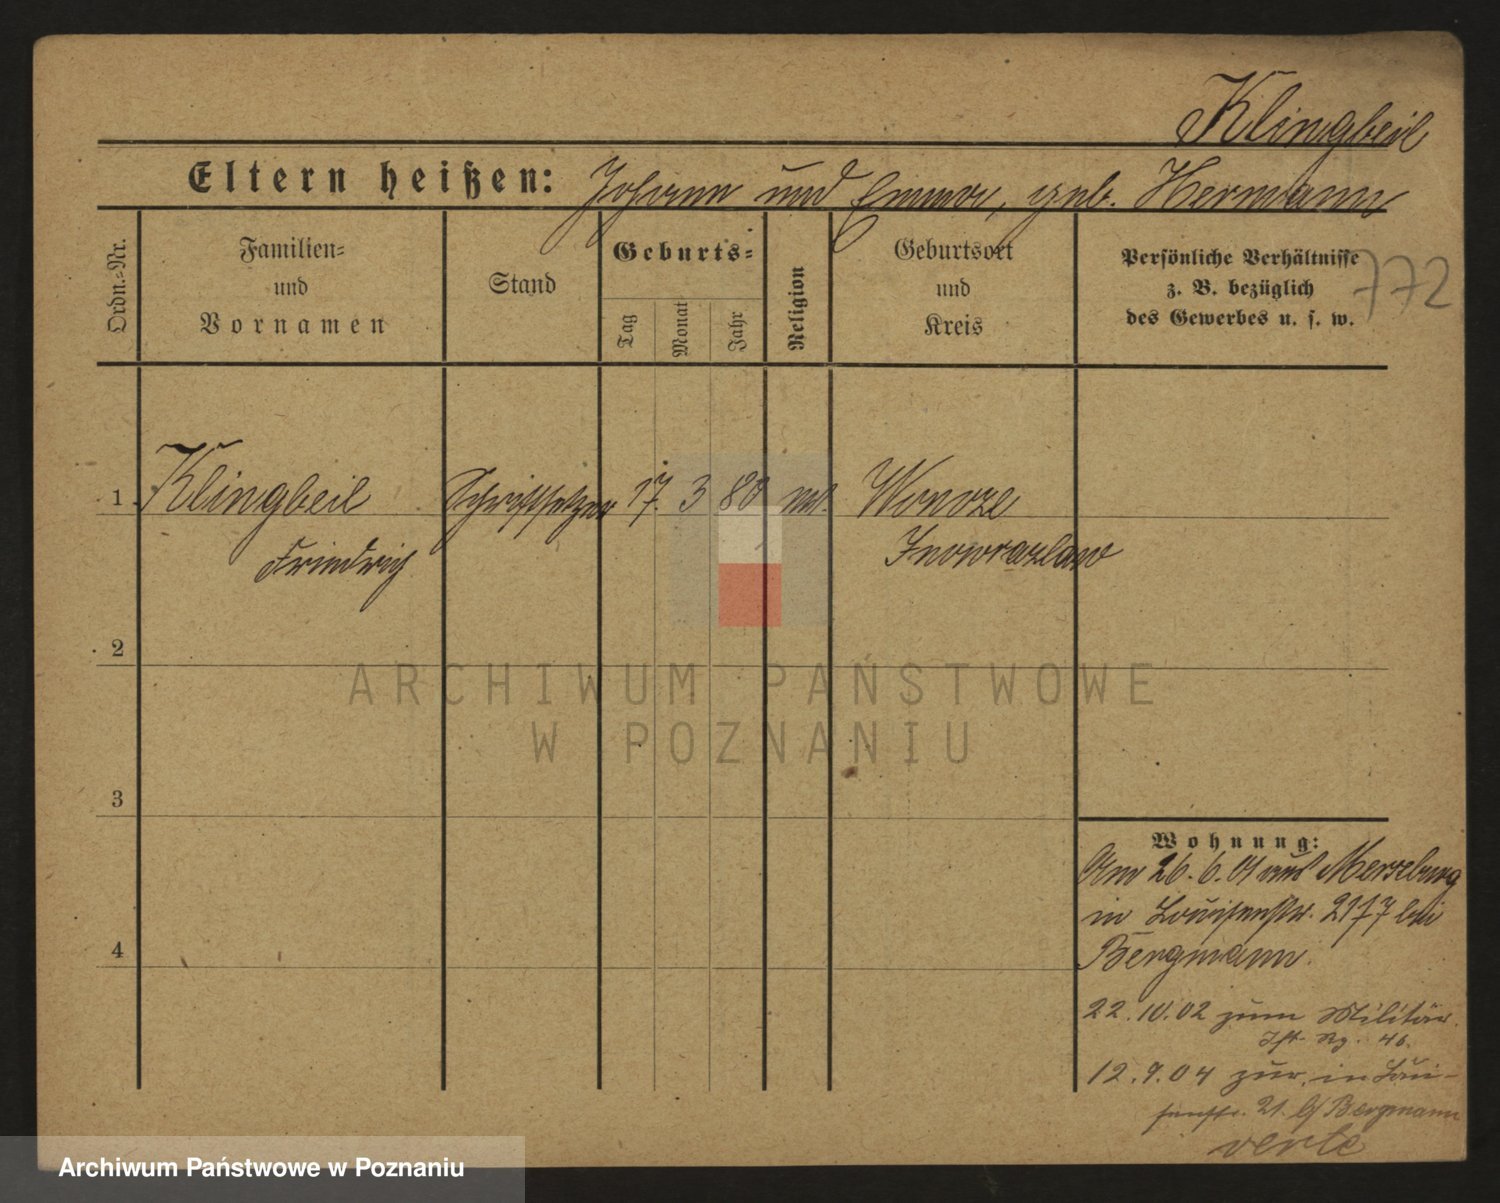 Klingbeil
Eltern heißen: Johann und Emma, geb. Hermann
Ordn.-Nr.
Familien-
und
Vornamen
Stand
Geburts-
Tag
Monat
Jahr
Religion
Geburtsort
und
Kreis
Persönliche Verhältnisse
z. B. bezüglich
des Gewerbes u. s. w.
772
1. Klingbeil Schriftsetzer 17. 3 80
Friedrich Inowrazlaw
2
3
4
ARCHIWUM PAŃSTWOWE
W POZNANIU
Wohnung:
Am 26. 6. 01 aus Merseburg
in Louisenstr. 21 bei
Bergmann.
22.10.02 zum Militär.
46.
12.9.04 zur. in Loui-
senstr. 21. b/ Bergmann
verte
Archiwum Państwowe w Poznaniu